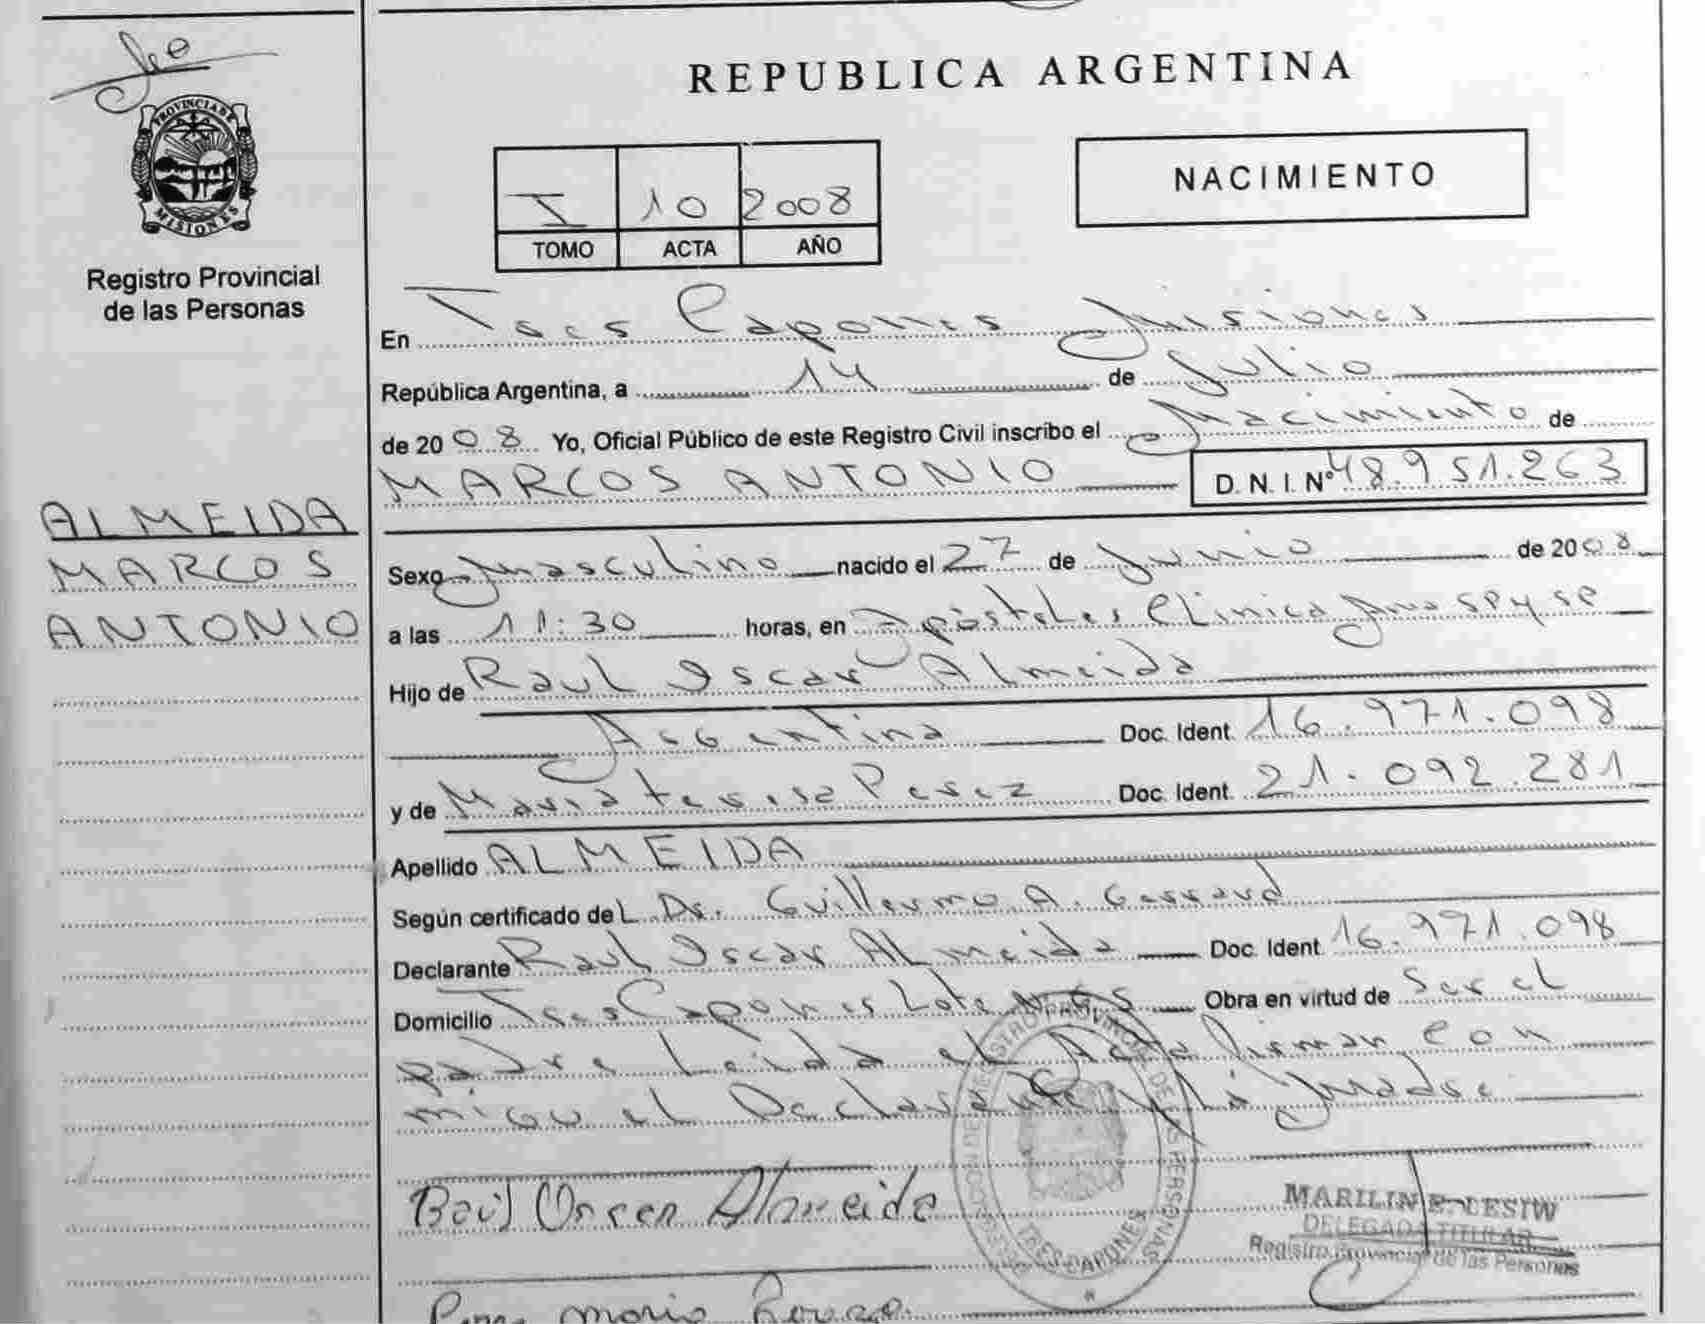 PROVINCIA DE
MISIONES
Registro Provincial
de las Personas
ALMEIDA
MARCOS
ANTONIO
REPUBLICA ARGENTINA
I 10 2008
TOMO ACTA AÑO
NACIMIENTO
En Tres Capones Misiones
República Argentina, a 14 de Julio
de 2008 Yo, Oficial Público de este Registro Civil inscribo el Nacimiento de
MARCOS ANTONIO D. N. I. Nº 48.951.263
Sexo Masculino nacido el 27 de Junio de 2008
a las 11:30 horas, en Apóstoles Clinica
Hijo de Raul Oscar Almeida
Argentina Doc. Ident. 16.971.098
y de Maria teresa Perez Doc. Ident. 21.092.281
Apellido ALMEIDA
Según certificado del Dr. Guillermo A. Gerrard
Declarante Raul Oscar Almeida Doc. Ident. 16.971.098
Domicilio Tres Capones Lote Nº Obra en virtud de Ser el
padre Leida el Acta firman con
migo el Declarante y la Madre
Raúl Oscar Almeida
REGISTRO PROVINCIAL DE LAS PERSONAS
TRES CAPONES
MARILIN E. LESIW
DELEGADA TITULAR
Registro Provincial de las Personas